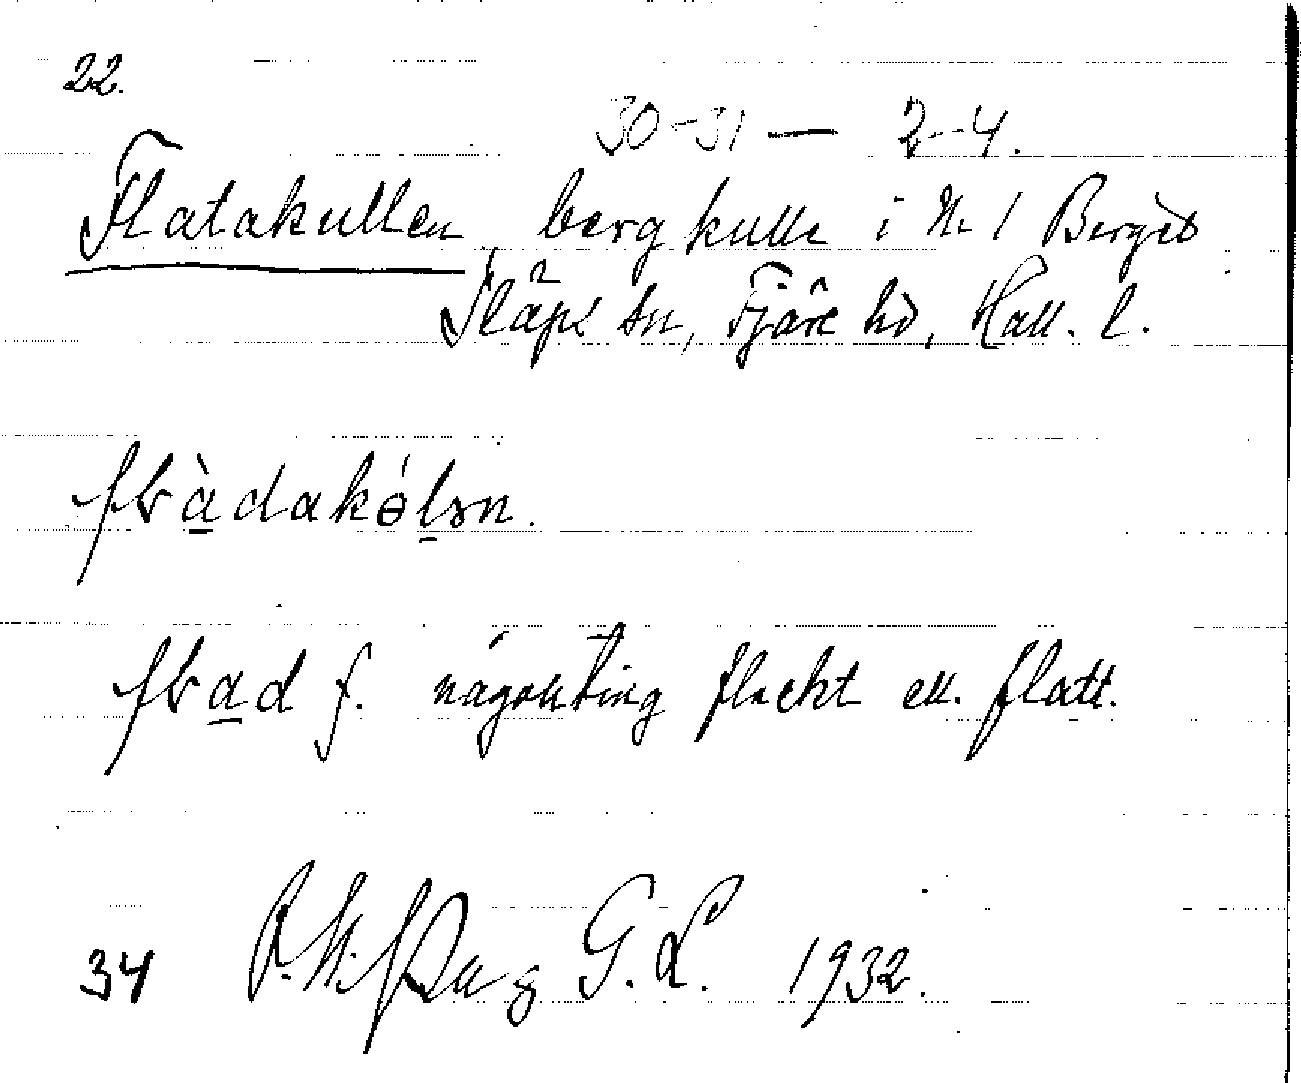 22.
30-31 — 2-4.
Flatakullen, bergkulle i N. 1 Berget
Släps sn, Fjäre hd, Hall. l.
flàdakɵ́lən.
flad f. någonting flackt ell. flatt.
34 G. L. 1932.